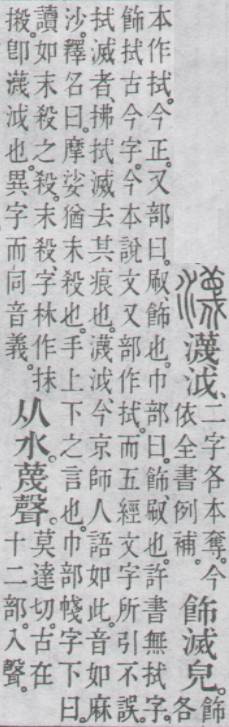 瀎 瀎泧、二字各本奪。今依全書例補。飾滅皃。飾各
本作拭。今正。又部曰。㕞、飾也。巾部曰。飾、㕞也。許書無拭字。
飾拭古今字。今本說文又部作拭。而五經文字所引不誤。
拭滅者、拂拭滅去其痕也。瀎泧、今京師人語如此。音如麻
沙。釋名曰。摩娑猶末殺也。手上下之言也。巾部帴字下曰。
讀如末殺之殺。末殺、字林作抹
摋。卽瀎泧也。異字而同音義。
从水。蔑聲。莫達切。古在十二部。入聲。